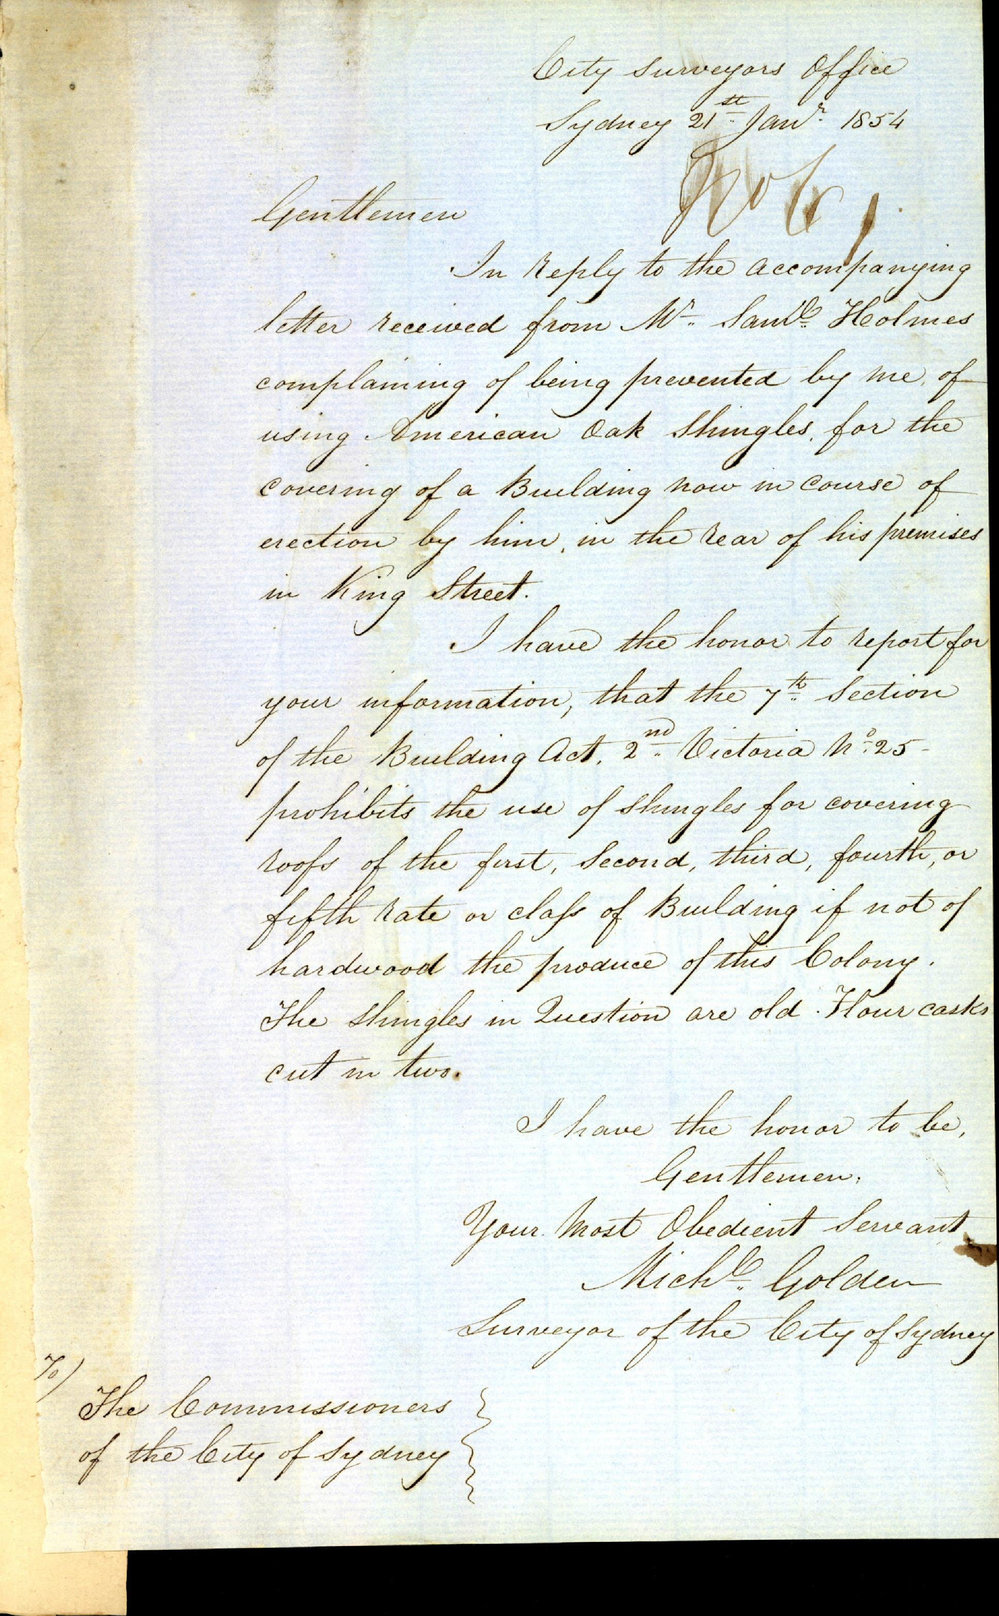 City Surveyors Office
Sydney 21st Janr. 1854
Gentlemen
In reply to the accompanying
letter received from Mr. Saml. Holmes
complaining of being prevented by me, of
using American Oak Shingles, for the
covering of a Building now in course of
erection by him, in the rear of his premises
in King Street.
I have the honor to report for
your information, that the 7th. Section
of the Building Act, 2nd. Victoria No. 25
prohibits the use of Shingles for covering
roofs of the first, Second, third, fourth, or
fifth Rate or class of Building if not of
hardwood the produce of this Colony.
The Shingles in Question are old Flour casks
cut in two.
I have the honor to be,
Gentlemen,
Your Most Obedient Servant
Michl. Golden
Surveyor of the City of Sydney
To)
The Commissioners
of the City of Sydney